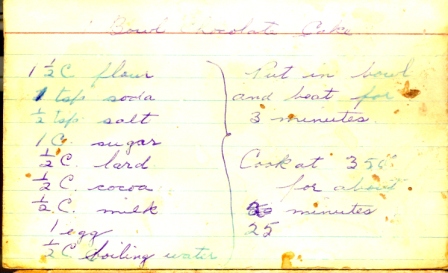 Bowl Chocolate Cake
1 1/2 C flour
1 tsp soda
1/2 tsp salt
1 C. sugar
1/2 C. lard
1/2 C. cocoa
1/2 C. milk
1 egg
1/2 C boiling water
Put in bowl
and beat for
3 minutes.
Cook at 350°
for about
minutes
25